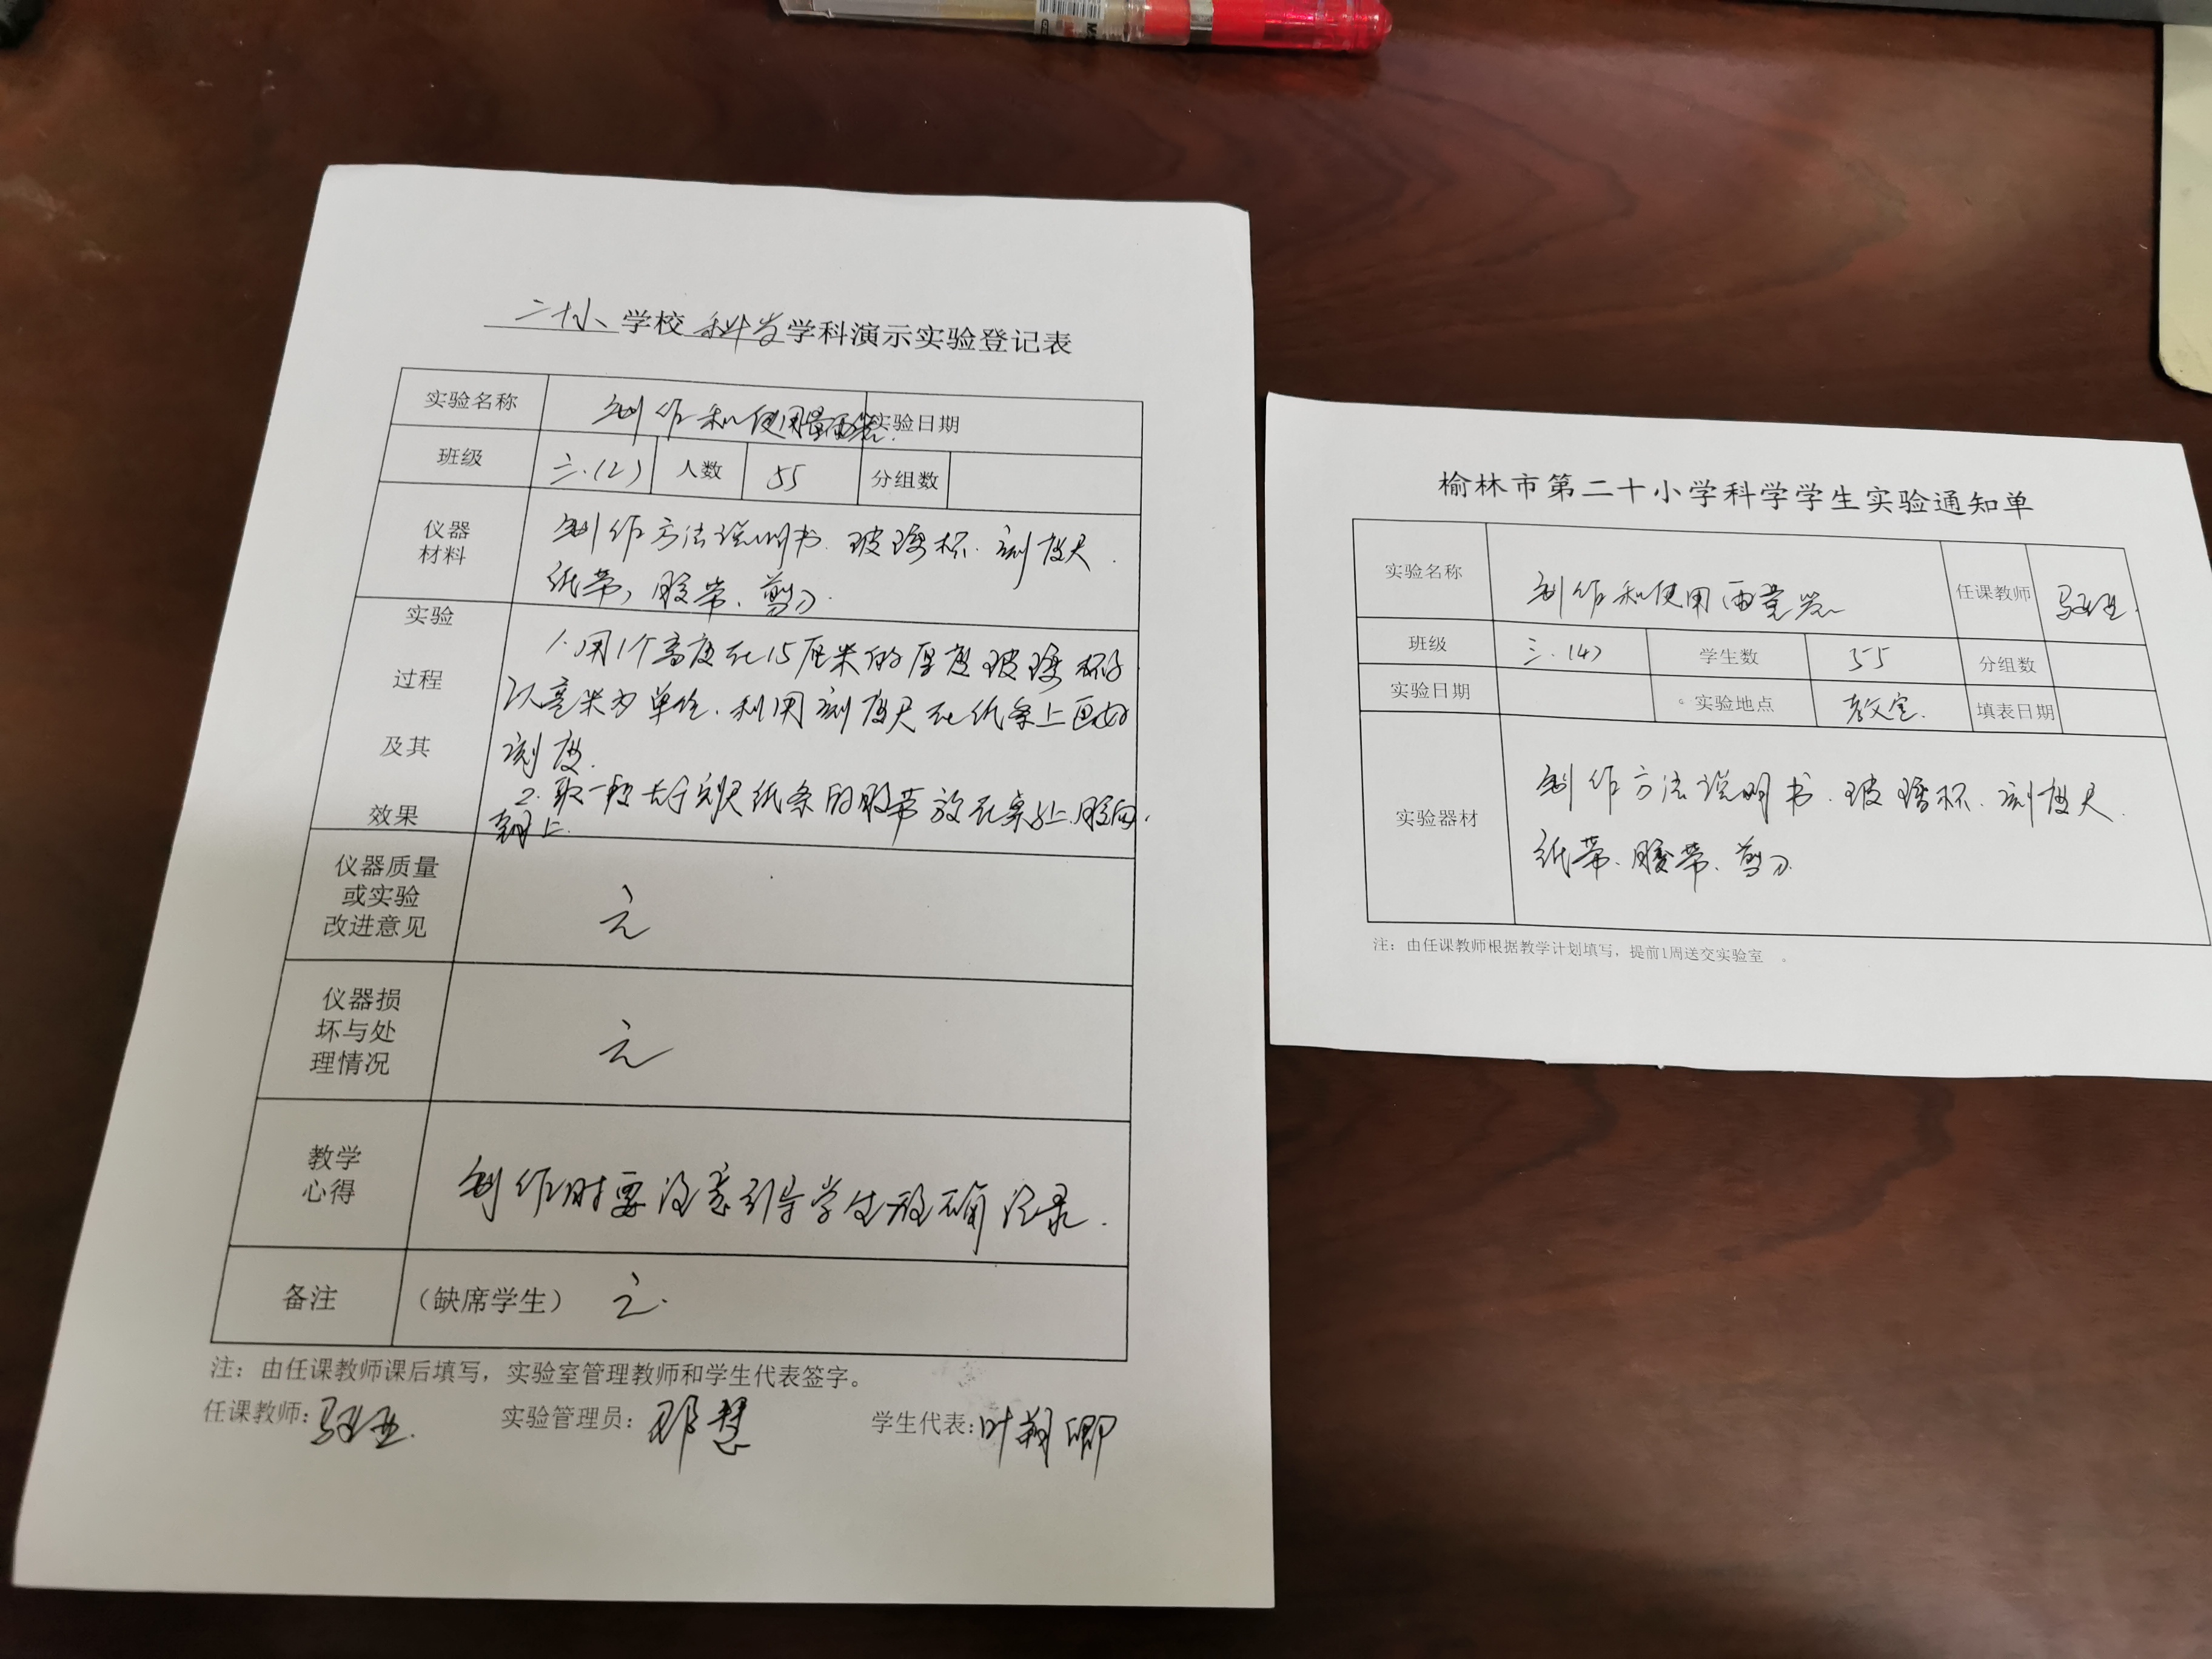 二十小学校科学学科演示实验登记表
实验名称 制作和使用量雨器. 实验日期
班级 三.(2) 人数 55 分组数
仪器材料 制作方法说明书. 玻璃杯. 刻度尺.
纸带, 胶带、剪刀.
实验过程及其效果
1.用1个高度在15厘米的厚度玻璃杯子
以毫米为单位.利用刻度尺在纸条上画好
刻度.
2.取一段大于刻尺纸条的胶带放在桌子上.胶面.
朝上.
仪器质量
或实验
改进意见 无
仪器损
坏与处
理情况 无
教学
心得 制作时要注意引导学生正确记录.
备注 (缺席学生) 无.
注：由任课教师课后填写，实验室管理教师和学生代表签字。
任课教师: 实验管理员: 慧 学生代表: 叶 卿
榆林市第二十小学科学学生实验通知单
实验名称 制作和使用雨量器 任课教师
班级 三.(4) 学生数 55 分组数
实验日期 实验地点 教室. 填表日期
实验器材 制作方法说明书.玻璃杯.刻度尺.
纸带、胶带、剪刀.
注：由任课教师根据教学计划填写，提前1周送交实验室 。